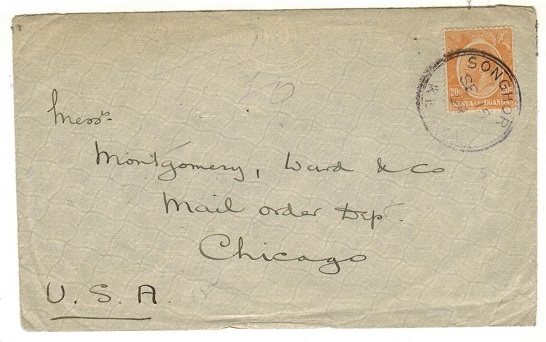 20c
KENYA AND UGANDA
SONGHOR
SE
Messrs.
Montgomery, Ward & Co
Mail order Dept.
Chicago
U. S. A.